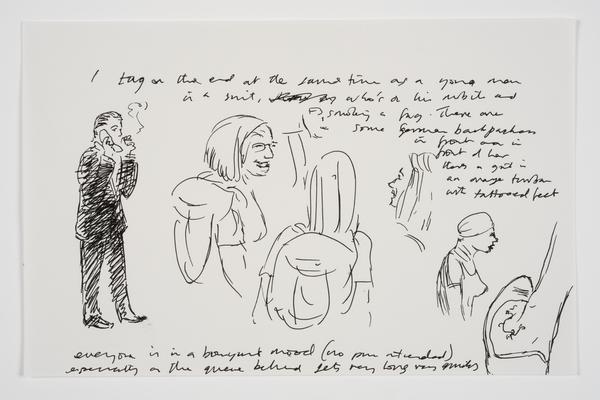 I tag on the end at the same time as a young man
in a suit, who's on his mobile and
smoking a fag. There are
some German backpackers
in front and in
front of her
there's a girl in
an orange turban
with tattooed feet
everyone is in a buoyant mood (no pun intended)
especially as the queue behind gets very long very quickly